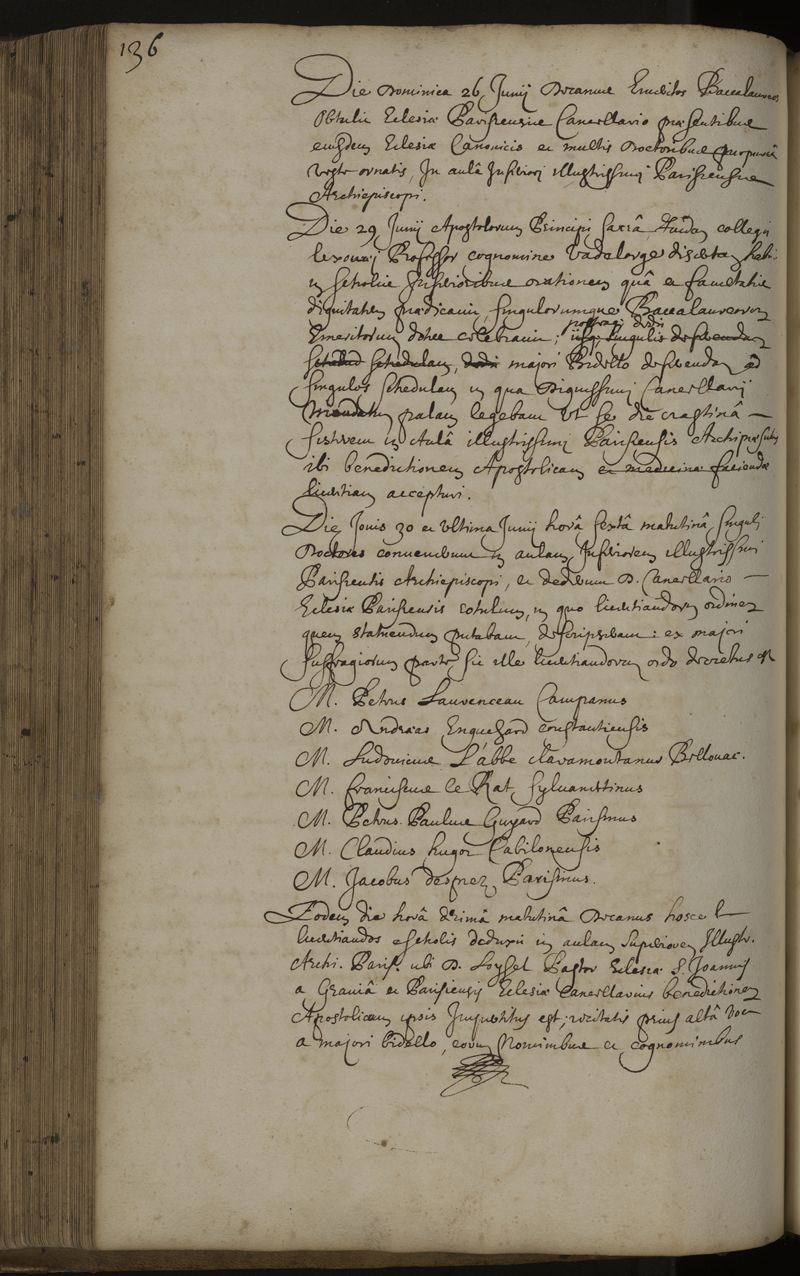 136
Die Dominica 26 Junij Decanus Emeritos Baccalaureos
obtulit Eclesiæ Parisiensis Cancellario præsentibus
eiusdem Eclesiæ Canonicis et multis Doctoribus purpureâ
veste ornatis, In aulâ Inferiori illustrissimi Parisiensis
Archiepiscopi.
Die 29 Junij Apostolorum Principi sacrâ, collegii
lexovaei Professor cognomine Padelorge disertam habuit
in scholis Inferioribus orationem quâ et facultatis
dignitatem prædicavit, singulorumque Baccalaureorum
Emeritorum dotes celebravit; singulis deferendam
postea dedi
schedulam, dedi majori Bidello deferendam ad
singulos schedulam in qua Dignissimi Cancellarij
Mandatum palam legebam ut se die crastinâ
sisterent in Aulâ illustrissimi Parisiensis Archipræsulis
ibi benedictionem Apostolicam et medicinæ faciendæ
licentiam accepturi.
Die Jovis 30 et ultima Junij horâ sextâ matutinâ, singuli
Doctores convenerunt in aulam Inferiorem illustrissimi
Parisiensis Archiepiscopi, et dederunt D. Cancellario
Eclesiæ Parisiensis rotulum, in quo licentiandorum ordinem
quem statuendum putabant, descripserant: ex majori
suffragiorum parte sic ille licentiandorum ordo decretus est
M. Petrus Lauvenceau Campanus
M. Andreas Enguehard constantiensis
M. Ludovicus L'abbe claramontanus Bellovac.
M. Franciscus le Rat Sylvanectinus
M. Petrus Paulus Guyard Parisinus
M. Claudius hugot Cabilonensis
M. Jacobus desprez Parisinus.
Eodem die horâ decimâ matutinâ Decanus hosce
licentiandos e scholis deduxit in aulam superiorem Illustr.
Archi. Paris. ubi D. Loysel Pastor Eclesiæ S. Joannis
a Graviâ et Parisiensis Eclesiæ Cancellarius benedictionem
Apostolicam ipsis Impertitus est, recitatis prius altâ voce
a majori bidello, eorum Nominibus et cognominibus